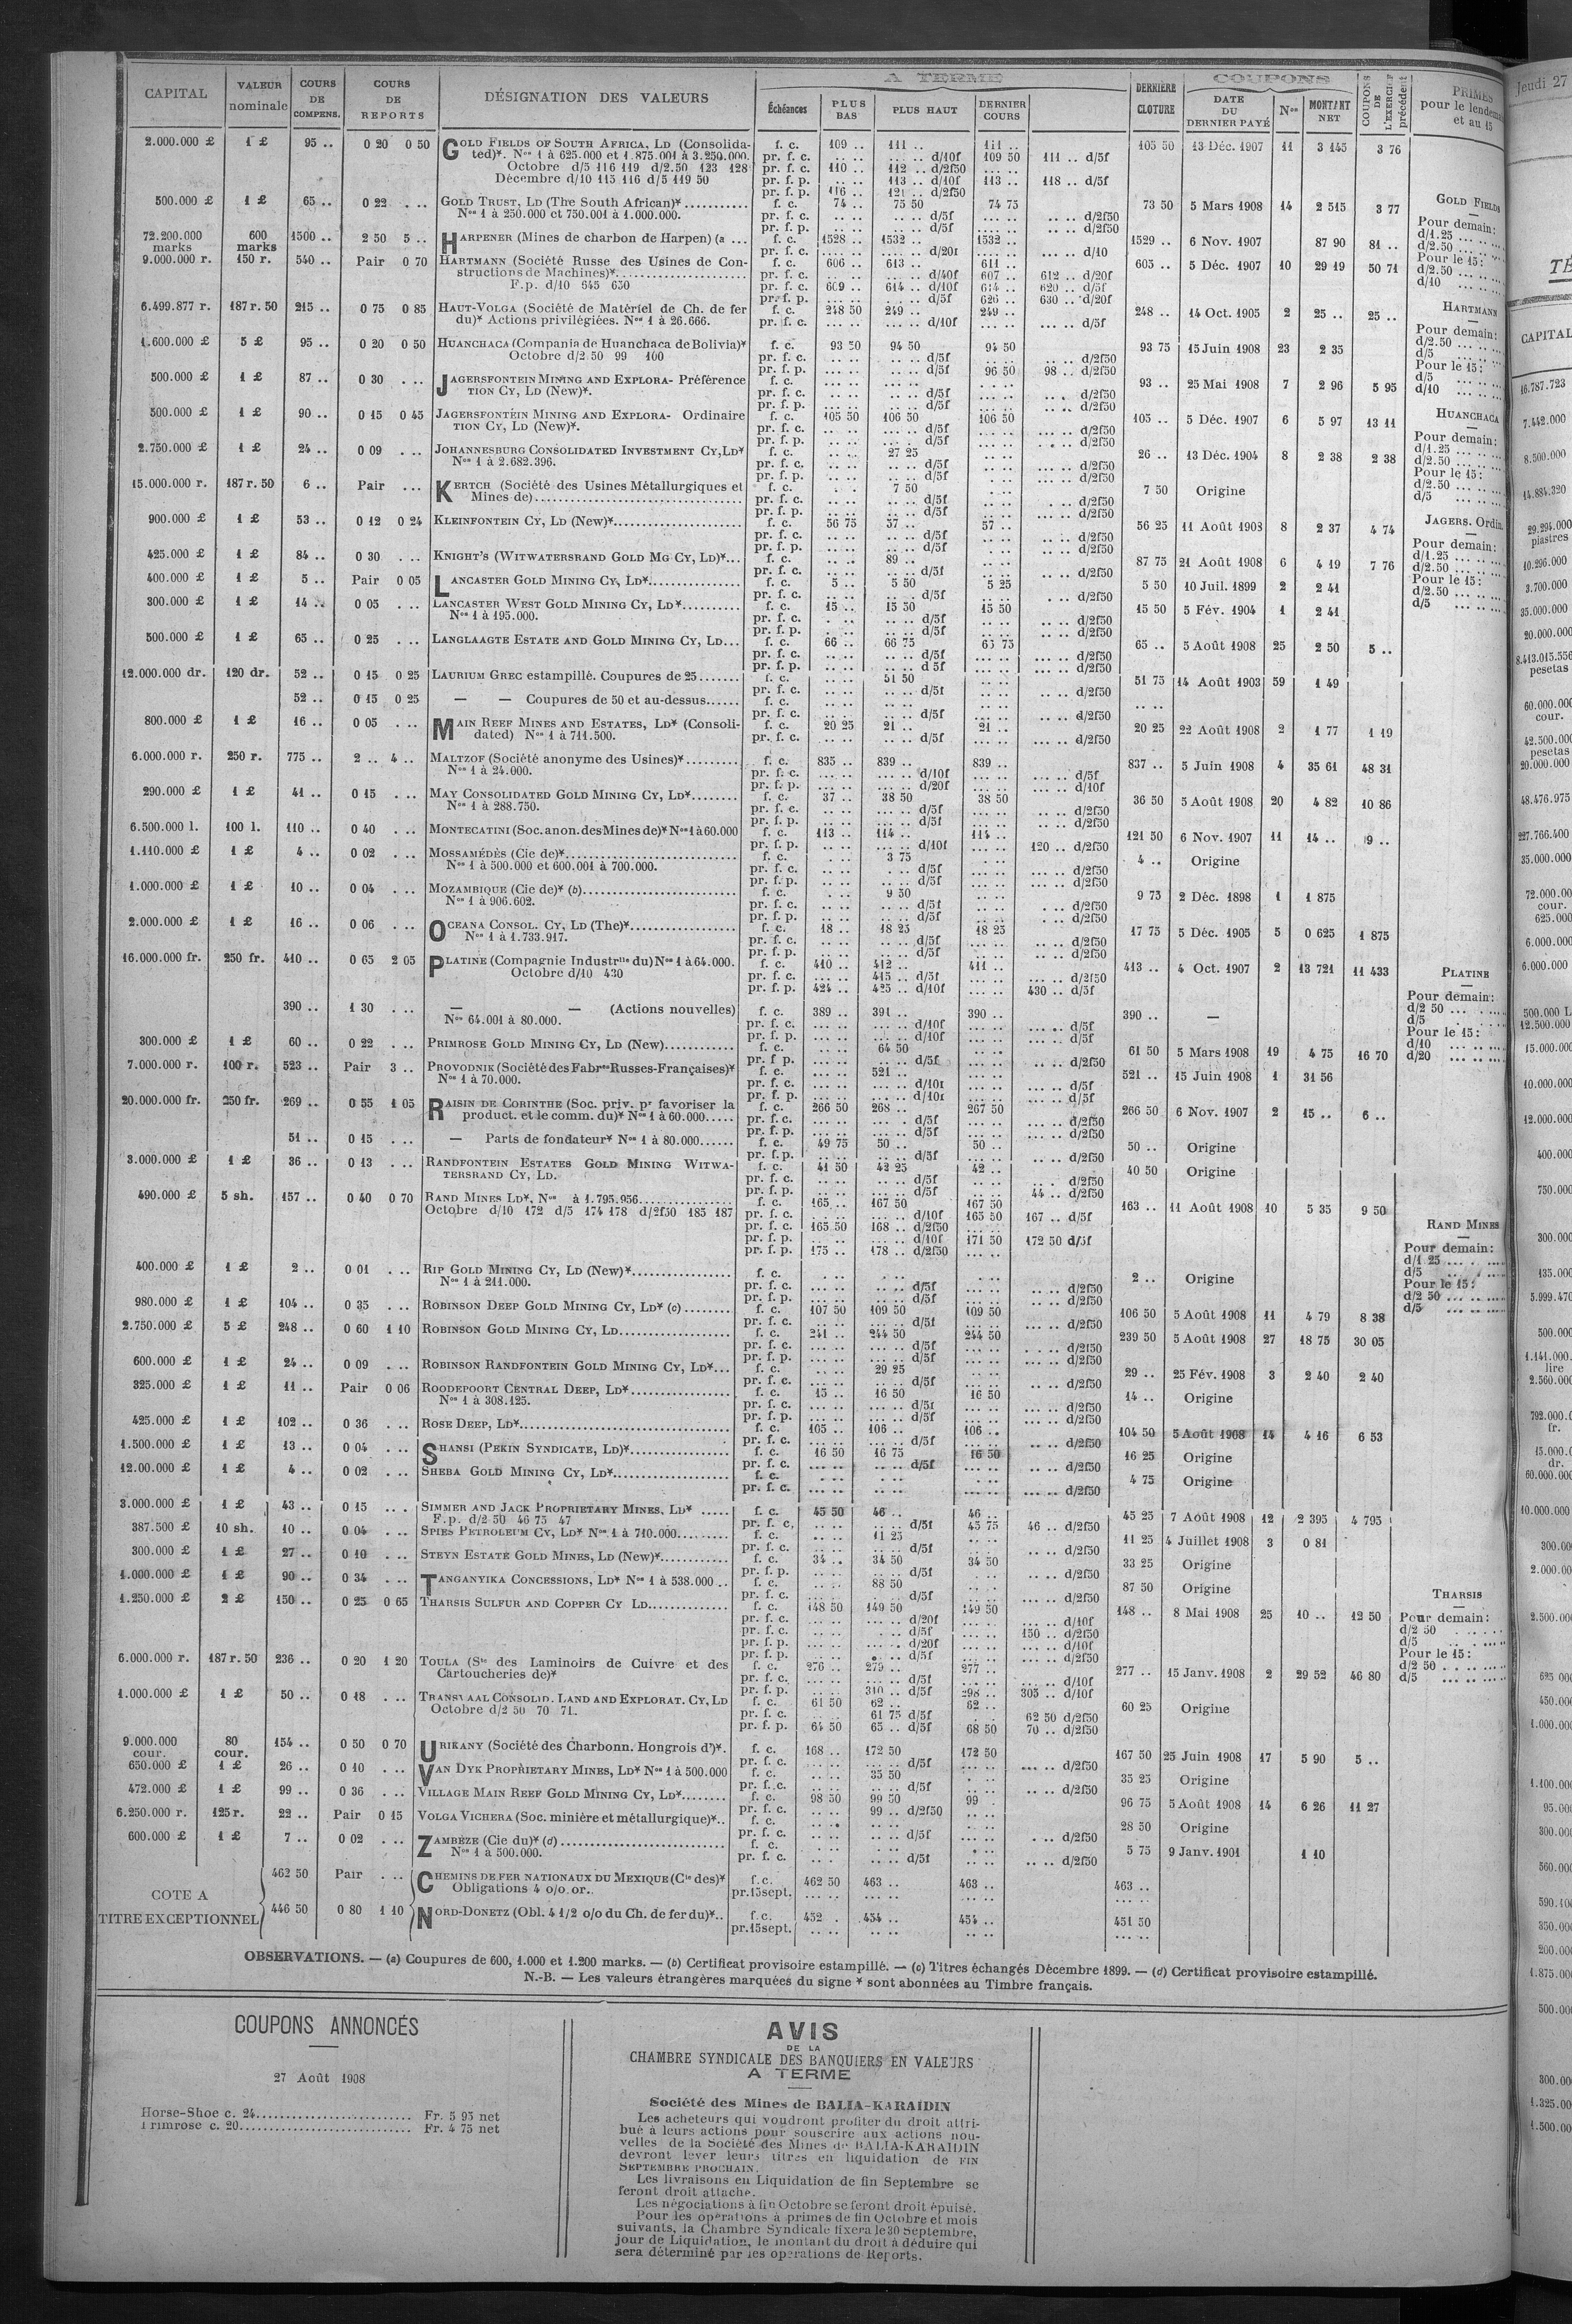 CAPITAL VALEUR nominale COURS DE COMPENS. COURS DE REPORTS DÉSIGNATION DES VALEURS A TERME Échéances PLUS BAS PLUS HAUT DERNIER COURS DERNIÈRE CLOTURE COUPONS DATE DU DERNIER PAYÉ Nos MONTANT NET COUPONS DE L'EXERCICE précédent PRIMES pour le et au 15
2.000.000 £ 1 £ 95 .. 0 20 0 50 GOLD FIELDS OF SOUTH AFRICA, LD (Consolida- f. c. 109 .. 111 .. 111 .. 105 50 13 Déc. 1907 11 3 145 3 76
ted)*. Nos 1 à 625.000 et 1.875.001 à 3.250.000. pr. f. c. .. .. .. .. d/10f 109 50 111 .. d/5f
Octobre d/5 116 119 d/2.50 123 128 pr. f. c. 110 .. 112 .. d/2f50
Décembre d/10 115 116 d/5 119 50 pr. f. p. .. .. 113 .. d/10f 113 .. 118 .. d/5f
pr. f. p. 116 .. 121 .. d/2f50
500.000 £ 1 £ 65 .. 0 22 . .. GOLD TRUST, LD (The South African)* f. c. 74 .. 75 50 74 75 73 50 5 Mars 1908 14 2 515 3 77
Nos 1 à 250.000 et 750.001 à 1.000.000. pr. f. c. d/5f d/2f50
pr. f. p. d/5f d/2f50
72.200.000 marks 600 marks 1500 .. 2 50 5 .. HARPENER (Mines de charbon de Harpen) (a ... f. c. 1528 .. 1532 .. 1532 .. 1529 .. 6 Nov. 1907 87 90 81 ..
pr. f. c. d/20f d/10
9.000.000 r. 150 r. 540 .. Pair 0 70 HARTMANN (Société Russe des Usines de Con- f. c. 606 .. 613 .. 611 .. 603 .. 5 Déc. 1907 10 29 19 50 71
structions de Machines)* pr. f. c. d/40f 607 612 .. d/20f
F.p. d/10 645 650 pr. f. c. 609 .. 614 .. d/10f 614 .. 620 .. d/5f
pr. f. p. d/5f 626 .. 630 .. d/20f
6.499.877 r. 187 r. 50 215 .. 0 75 0 85 HAUT-VOLGA (Société de Matériel de Ch. de fer f. c. 248 50 249 .. 249 .. 248 .. 14 Oct. 1905 2 25 .. 25 ..
du)* Actions privilégiées. Nos 1 à 26.666. pr. f. c. d/10f d/5f
1.600.000 £ 5 £ 95 .. 0 20 0 50 HUANCHACA (Compania de Huanchaca de Bolivia)* f. c. 93 50 94 50 94 50 93 75 15 Juin 1908 23 2 35
Octobre d/2 50 99 100 pr. f. c. d/5f d/2f50
pr. f. p. d/5f 96 50 98 .. d/2f50
500.000 £ 1 £ 87 .. 0 30 . .. JAGERSFONTEIN MINING AND EXPLORA- Préférence f. c. 93 .. 25 Mai 1908 7 2 96 5 95
TION CY, LD (New)*. pr. f. c. d/5f d/2f50
pr. f. p. d/5f d/2f50
500.000 £ 1 £ 90 .. 0 15 0 45 JAGERSFONTEIN MINING AND EXPLORA- Ordinaire f. c. 105 50 106 50 106 50 105 .. 5 Déc. 1907 6 5 97 13 11
TION CY, LD (New)*. pr. f. c. d/5f d/2f50
pr. f. p. d/5f d/2f50
2.750.000 £ 1 £ 24 .. 0 09 . .. JOHANNESBURG CONSOLIDATED INVESTMENT CY, LD* f. c. 27 25 26 .. 13 Déc. 1904 8 2 38 2 38
Nos 1 à 2.682.396. pr. f. c. d/5f d/2f50
pr. f. p. d/5f d/2f50
15.000.000 r. 187 r. 50 6 .. Pair ... KERTCH (Société des Usines Métallurgiques et f. c. 7 50 7 50 Origine
Mines de) pr. f. c. d/5f d/2f50
pr. f. p. d/5f d/2f50
900.000 £ 1 £ 53 .. 0 12 0 24 KLEINFONTEIN CY, LD (New)* f. c. 56 75 57 .. 57 .. 56 25 11 Août 1908 8 2 37 4 74
pr. f. c. d/5f d/2f50
pr. f. p. d/5f d/2f50
425.000 £ 1 £ 84 .. 0 30 . .. KNIGHT'S (WITWATERSRAND GOLD MG CY, LD)*... f. c. 89 .. 87 75 21 Août 1908 6 4 19 7 76
pr. f. c. d/5f d/2f50
400.000 £ 1 £ 5 .. Pair 0 05 LANCASTER GOLD MINING CY, LD* f. c. 5 .. 5 50 5 25 5 50 10 Juil. 1899 2 2 41
pr. f. c. d/5f d/2f50
300.000 £ 1 £ 14 .. 0 05 . .. LANCASTER WEST GOLD MINING CY, LD* f. c. 15 .. 15 50 15 50 15 50 5 Fév. 1904 1 2 41
Nos 1 à 195.000. pr. f. c. d/5f d/2f50
pr. f. p. d/5f d/2f50
500.000 £ 1 £ 65 .. 0 25 . .. LANGLAAGTE ESTATE AND GOLD MINING CY, LD... f. c. 66 .. 66 75 65 75 65 .. 5 Août 1908 25 2 50 5 ..
pr. f. c. d/5f d/2f50
pr. f. p. d 5f d/2f50
12.000.000 dr. 120 dr. 52 .. 0 15 0 25 LAURIUM GREC estampillé. Coupures de 25 f. c. 51 50 51 75 14 Août 1903 59 1 49
pr. f. c. d/5f d/2f50
52 .. 0 15 0 25 — — Coupures de 50 et au-dessus
pr. f. c. d/5f d/2f50
800.000 £ 1 £ 16 .. 0 05 . .. MAIN REEF MINES AND ESTATES, LD* (Consoli- f. c. 20 25 21 .. 21 .. 20 25 22 Août 1908 2 1 77 1 19
dated) Nos 1 à 711.500. pr. f. c. d/5f d/2f50
6.000.000 r. 250 r. 775 .. 2 .. 4 .. MALTZOF (Société anonyme des Usines)* f. c. 835 .. 839 .. 839 .. 837 .. 5 Juin 1908 4 35 61 48 31
Nos 1 à 24.000. pr. f. c. d/10f d/5f
pr. f. p. d/20f d/10f
290.000 £ 1 £ 41 .. 0 15 . .. MAY CONSOLIDATED GOLD MINING CY, LD* f. c. 37 .. 38 50 38 50 36 50 5 Août 1908 20 4 82 10 86
Nos 1 à 288.750. pr. f. c. d/5f d/2f50
pr. f. p. d/5f d/2f50
6.500.000 l. 100 l. 110 .. 0 40 . .. MONTECATINI (Soc. anon. des Mines de)* Nos 1 à 60.000 f. c. 113 .. 114 .. 114 .. 121 50 6 Nov. 1907 11 14 .. 9 ..
pr. f. p. d/10f 120 .. d/2f50
1.110.000 £ 1 £ 4 .. 0 02 . .. MOSSAMÉDÈS (Cie de)* f. c. 3 75 4 .. Origine
Nos 1 à 500.000 et 600.001 à 700.000. pr. f. c. d/5f d/2f50
pr. f. p. d/5f d/2f50
1.000.000 £ 1 £ 10 .. 0 04 . .. MOZAMBIQUE (Cie de)* (b) f. c. 9 50 9 75 2 Déc. 1898 1 1 875
Nos 1 à 906.602. pr. f. c. d/5f d/2f50
pr. f. p. d/5f d/2f50
2.000.000 £ 1 £ 16 .. 0 06 . .. OCEANA CONSOL. CY, LD (The)* f. c. 18 .. 18 25 18 25 17 75 5 Déc. 1905 5 0 625 1 875
Nos 1 à 1.733.917. pr. f. c. d/5f d/2f50
pr. f. p. d/5f d/2f50
16.000.000 fr. 250 fr. 410 .. 0 65 2 05 PLATINE (Compagnie Industrlle du) Nos 1 à 64.000. f. c. 410 .. 412 .. 411 .. 413 .. 4 Oct. 1907 2 13 721 11 433
Octobre d/10 430 pr. f. c. 415 .. d/5f d/2f50
pr. f. p. 424 .. 425 .. d/10f 430 .. d/5f
390 .. 1 30 . .. — — (Actions nouvelles) f. c. 389 .. 391 .. 390 .. 390 .. —
Nos 64.001 à 80.000. pr. f. c. d/10f d/5f
pr. f. p. d/10f d/5f
300.000 £ 1 £ 60 .. 0 22 . .. PRIMROSE GOLD MINING CY, LD (New) f. c. 64 50 61 50 5 Mars 1908 19 4 75 16 70
pr. f. p. d/5f d/2f50
7.000.000 r. 100 r. 523 .. Pair 3 .. PROVODNIK (Société des Fabres Russes-Françaises)* f. c. 521 .. 521 .. 15 Juin 1908 1 31 56
Nos 1 à 70.000. pr. f. c. d/10f d/5f
pr. f. p. d/10f d/5f
20.000.000 fr. 250 fr. 269 .. 0 55 1 05 RAISIN DE CORINTHE (Soc. priv. pr favoriser la f. c. 266 50 268 .. 267 50 266 50 6 Nov. 1907 2 15 .. 6 ..
product. et le comm. du)* Nos 1 à 60.000 pr. f. c. d/5f d/2f50
pr. f. p. d/5f d/2f50
51 .. 0 15 . .. — Parts de fondateur* Nos 1 à 80.000 f. c. 49 75 50 .. 50 .. 50 .. Origine
pr. f. p. d/5f d/2f50
3.000.000 £ 1 £ 36 .. 0 13 . .. RANDFONTEIN ESTATES GOLD MINING WITWA- f. c. 41 50 42 25 42 .. 40 50 Origine
TERSRAND CY, LD. pr. f. c. d/5f d/2f50
pr. f. p. d/5f 44 .. d/2f50
490.000 £ 5 sh. 157 .. 0 40 0 70 RAND MINES LD*. Nos à 1.795.956 f. c. 165 .. 167 50 167 50 163 .. 11 Août 1908 10 5 35 9 50
Octobre d/10 172 d/5 174 178 d/2f50 185 187 pr. f. c. d/10f 165 50 167 .. d/5f
pr. f. c. 165 50 168 .. d/2f50
pr. f. p. d/10f 171 50 172 50 d/5f
pr. f. p. 175 .. 178 .. d/2f50
400.000 £ 1 £ 2 .. 0 01 . .. RIP GOLD MINING CY, LD (New)* f. c. 2 .. Origine
Nos 1 à 211.000. pr. f. c. d/5f d/2f50
pr. f. p. d/5f d/2f50
980.000 £ 1 £ 104 .. 0 35 . .. ROBINSON DEEP GOLD MINING CY, LD* (c) f. c. 107 50 109 50 109 50 106 50 5 Août 1908 11 4 79 8 38
pr. f. c. d/5f d/2f50
2.750.000 £ 5 £ 248 .. 0 60 1 10 ROBINSON GOLD MINING CY, LD f. c. 241 .. 244 50 244 50 239 50 5 Août 1908 27 18 75 30 05
pr. f. c. d/5f d/2f50
pr. f. p. d/5f d/2f50
600.000 £ 1 £ 24 .. 0 09 . .. ROBINSON RANDFONTEIN GOLD MINING CY, LD*... f. c. 29 25 29 .. 25 Fév. 1908 3 2 40 2 40
pr. f. c. d/5f d/2f50
325.000 £ 1 £ 11 .. Pair 0 06 ROODEPOORT CENTRAL DEEP, LD* f. c. 15 .. 16 50 16 50 14 .. Origine
Nos 1 à 308.125. pr. f. c. d/5f d/2f50
pr. f. p. d/5f d/2f50
425.000 £ 1 £ 102 .. 0 36 . .. ROSE DEEP, LD* f. c. 105 .. 106 .. 106 .. 104 50 5 Août 1908 14 4 16 6 53
pr. f. c. d/5f d/2f50
1.500.000 £ 1 £ 13 .. 0 04 . .. SHANSI (PEKIN SYNDICATE, LD)* f. c. 16 50 16 75 16 50 16 25 Origine
pr. f. c. d/5f d/2f50
12.00.000 £ 1 £ 4 .. 0 02 . .. SHEBA GOLD MINING CY, LD* f. c. 4 75 Origine
pr. f. c. d/2f50
3.000.000 £ 1 £ 43 .. 0 15 . .. SIMMER AND JACK PROPRIETARY MINES, LD* f. c. 45 50 46 .. 46 .. 45 25 7 Août 1908 12 2 395 4 795
F.p. d/2 50 46 75 47 pr. f. c. d/5f 45 75 46 .. d/2f50
387.500 £ 10 sh. 10 .. 0 04 . .. SPIES PETROLEUM CY, LD* Nos 1 à 710.000 f. c. 11 25 11 25 4 Juillet 1908 3 0 81
pr. f. c. d/5f d/2f50
300.000 £ 1 £ 27 .. 0 10 . .. STEYN ESTATE GOLD MINES, LD (New)* f. c. 34 .. 34 50 34 50 33 25 Origine
pr. f. p. d/5f d/2f50
1.000.000 £ 1 £ 90 .. 0 34 . .. TANGANYIKA CONCESSIONS, LD* Nos 1 à 538.000 .. f. c. 88 50 87 50 Origine
pr. f. c. d/5f d/2f50
1.250.000 £ 2 £ 150 .. 0 25 0 65 THARSIS SULFUR AND COPPER CY LD f. c. 148 50 149 50 149 50 148 .. 8 Mai 1908 25 10 .. 12 50
pr. f. c. d/20f d/10f
pr. f. c. d/5f 150 .. d/2f50
pr. f. p. d/20f d/10f
pr. f. p. d/5f d/2f50
6.000.000 r. 187 r. 50 236 .. 0 20 1 20 TOULA (Sté des Laminoirs de Cuivre et des f. c. 276 .. 279 .. 277 .. 277 .. 15 Janv. 1908 2 29 52 46 80
Cartoucheries de)* pr. f. c. d/5f d/10f
pr. f. p. 310 .. d/5f 298 .. 305 .. d/10f
1.000.000 £ 1 £ 50 .. 0 18 . .. TRANSVAAL CONSOLID. LAND AND EXPLORAT. CY, LD f. c. 61 50 62 .. 62 .. 60 25 Origine
Octobre d/2 50 70 71. pr. f. c. 61 75 d/5f 62 50 d/2f50
pr. f. p. 64 50 65 .. d/5f 68 50 70 .. d/2f50
9.000.000 cour. 80 cour. 154 .. 0 50 0 70 URIKANY (Société des Charbonn. Hongrois d')*. f. c. 168 .. 172 50 172 50 167 50 25 Juin 1908 17 5 90 5 ..
pr. f. c. d/5f d/2f50
650.000 £ 1 £ 26 .. 0 10 . .. VAN DYK PROPRIETARY MINES, LD* Nos 1 à 500.000 f. c. 35 50 35 25 Origine
pr. f. c. d/5f d/2f50
472.000 £ 1 £ 99 .. 0 36 VILLAGE MAIN REEF GOLD MINING CY, LD* f. c. 98 50 99 50 99 96 75 5 Août 1908 14 6 26 11 27
pr. f. c. 99 .. d/2f50
6.250.000 r. 125 r. 22 .. Pair 0 15 VOLGA VICHERA (Soc. minière et métallurgique)*.. f. c. 28 50 Origine
pr. f. c. d/5f d/2f50
600.000 £ 1 £ 7 .. 0 02 . .. ZAMBÈZE (Cie du)* (d) f. c. 5 75 9 Janv. 1901 1 10
Nos 1 à 500.000. pr. f. c. d/5f d/2f50
COTE A TITRE EXCEPTIONNEL
462 50 Pair . .. CHEMINS DE FER NATIONAUX DU MEXIQUE (Cie des)* f.c. 462 50 463 .. 463 .. 463 ..
Obligations 4 o/o or.. pr.15sept.
446 50 0 80 1 10 NORD-DONETZ (Obl. 4 1/2 o/o du Ch. de fer du)*.. f.c. 452 . 454 .. 454 .. 451 50
pr.15sept.
GOLD FIELDS
Pour demain:
d/1.25
d/2.50
Pour le 15:
d/2.50
d/10
HARTMANN
Pour demain:
d/2.50
d/5
Pour le 15:
d/5
d/10
HUANCHACA
Pour demain:
d/1.25
d/2.50
Pour le 15:
d/2.50
d/5
JAGERS. Ordin.
Pour demain:
d/1.25
d/2.50
Pour le 15:
d/2.50
d/5
PLATINE
Pour demain:
d/2 50
d/5
Pour le 15:
d/10
d/20
RAND MINES
Pour demain:
d/1 25
d/5
Pour le 15:
d/2 50
d/5
THARSIS
Pour demain:
d/2 50
d/5
Pour le 15:
d/2 50
d/5
OBSERVATIONS. — (a) Coupures de 600, 1.000 et 1.200 marks. — (b) Certificat provisoire estampillé. — (c) Titres échangés Décembre 1899. — (d) Certificat provisoire estampillé.
N.-B. — Les valeurs étrangères marquées du signe * sont abonnées au Timbre français.
COUPONS ANNONCÉS
27 Août 1908
Horse-Shoe c. 24 Fr. 5 95 net
Primrose c. 20 Fr. 4 75 net
AVIS
DE LA
CHAMBRE SYNDICALE DES BANQUIERS EN VALEURS
A TERME
Société des Mines de BALIA-KARAIDIN
Les acheteurs qui voudront profiter du droit attri-
bué à leurs actions pour souscrire aux actions nou-
velles de la Société des Mines de BALIA-KARAIDIN
devront lever leurs titres en liquidation de FIN
SEPTEMBRE PROCHAIN.
Les livraisons en Liquidation de fin Septembre se
feront droit attaché.
Les négociations à fin Octobre se feront droit épuisé.
Pour les opérations à primes de fin Octobre et mois
suivants, la Chambre Syndicale fixera le 30 Septembre,
jour de Liquidation, le montant du droit à déduire qui
sera déterminé par les opérations de Reports.
Jeudi 27
CAPITAL
16.787.723
7.442.000
8.500.000
14.884.320
29.294.000
piastres
10.296.000
3.700.000
35.000.000
20.000.000
pesetas
60.000.000
cour.
42.500.000
pesetas
20.000.000
48.476.975
227.766.400
35.000.000
cour.
625.000
6.000.000
6.000.000
12.500.000
15.000.000
10.000.000
12.000.000
400.000
750.000
300.000
435.000
500.000
lire
2.560.000
fr.
dr.
10.000.000